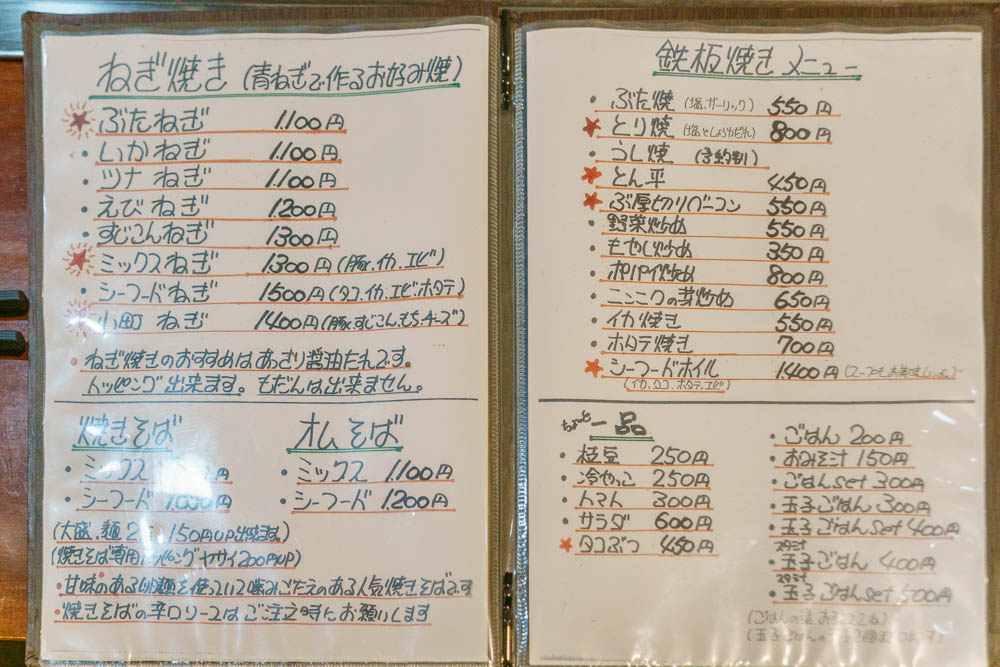 ねぎ焼き (青ねぎで作るお好み焼)
ぶたねぎ 1.100円
・いかねぎ 1.100円
・ツナねぎ 1.100円
・えびねぎ 1.200円
・すじこんねぎ 1300円
ミックスねぎ 1.300円(豚、イカ、エビ)
・シーフードねぎ 1500円(タコ、イカ、エビ、ホタテ)
小町ねぎ 1400円(豚、すじこん、もち、チーズ)
・ねぎ焼きのおすすめはあっさり醤油たれです。
トッピング出来ます。もだんは出来ません。
焼きそば
・ミックス 円
・シーフード 円
(大盛、麺2 150円UP出来ます)
(焼きそば専用トッピングヤサイ200円UP)
・甘味のある 麺を使っていて噛みごたえのある人気焼きそばです
・焼きそばの辛口ソースはご注文時にお願いします
オムそば
・ミックス 1.100円
・シーフード 1.200円
鉄板焼きメニュー
・ぶた焼 (塩、ガーリック) 550円
とり焼 (塩、 ) 800円
・うし焼 (予約制)
とん平 450円
ぶ厚切りベーコン 550円
・野菜炒め 550円
・もやし炒め 350円
・ポパイ炒め 800円
・ニンニクの芽炒め 650円
・イカ焼き 550円
・ホタテ焼き 700円
シーフードホイル 1.400円
(イカ、タコ、ホタテ、エビ)
ちょっと一品
・枝豆 250円
・冷やっこ 250円
・トマト 300円
・サラダ 600円
タコぶつ 450円
・ごはん 200円
・おみそ汁 150円
・ごはんset 300円
・玉子ごはん 300円
・玉子ごはんset 400円
スタミナ
・玉子ごはん 400円
スタミナ
・玉子ごはんset 500円